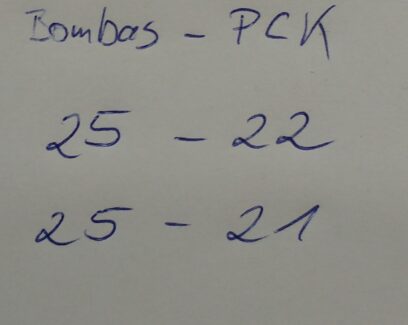 Bombas - PCK
25 - 22
25 - 21